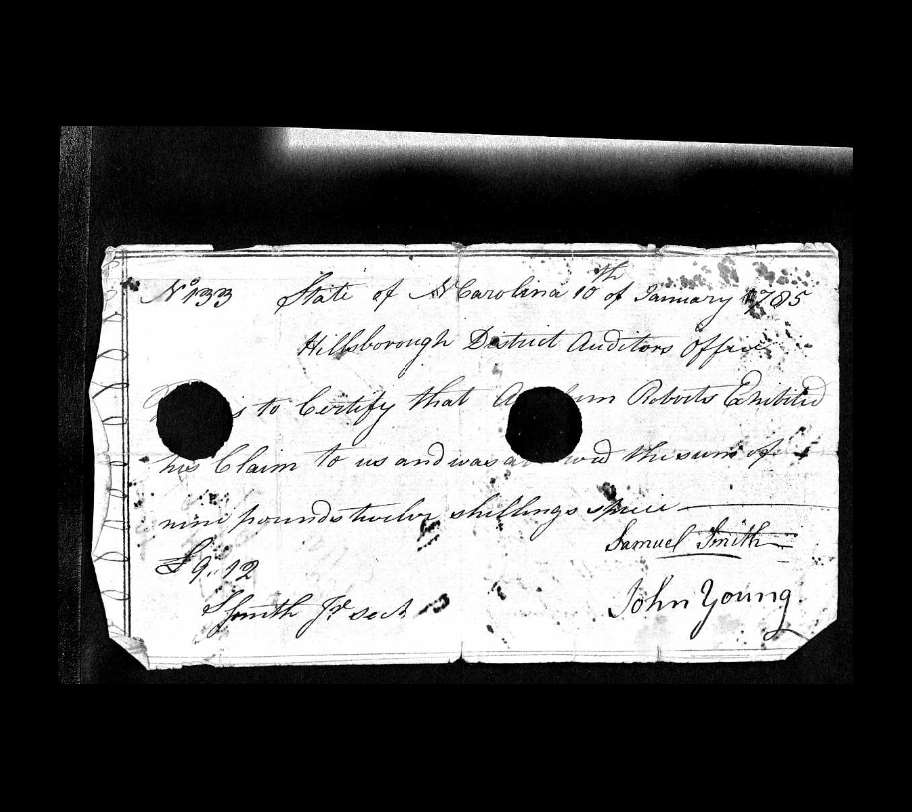 No 133 State of N Carolina 10th of January 1785
Hillsborough District Auditors Office
s to Certify that Roberts Exhibited
his Claim to us and was the sum of
nine pounds twelve shillings specie
Samuel Smith
£9. 12
John Young
S Smith Jr secr